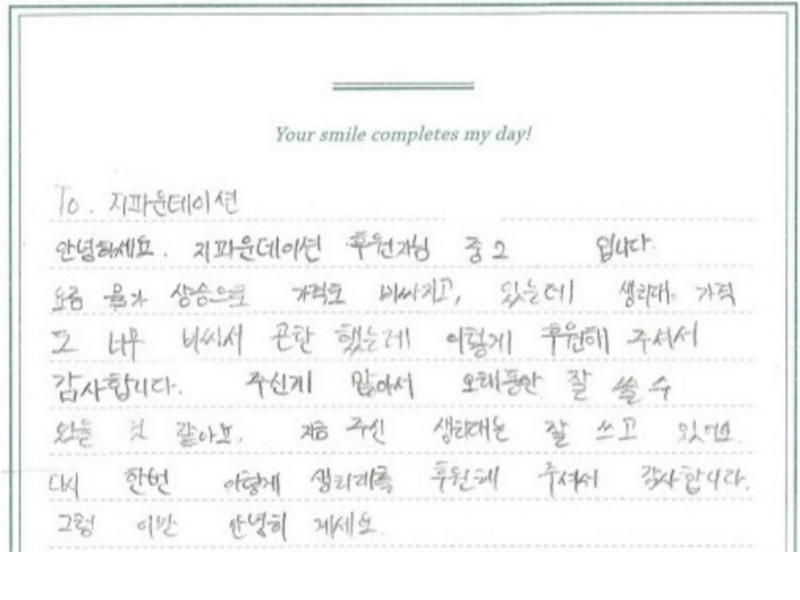 Your smile completes my day!
To. 지파운데이션
안녕하세요. 지파운데이션 후원자님 중2 입니다.
요즘 물가 상승으로 가격도 비싸지고, 있는데 생리대 가격
도 너무 비싸서 곤란 했는데 이렇게 후원해 주셔서
감사합니다. 주신게 많아서 오래동안 잘 쓸 수
있을 것 같아요. 지금 주신 생리대는 잘 쓰고 있어요.
다시 한번 이렇게 생리대를 후원해 주셔서 감사합니다.
그럼 이만 안녕히 계세요.